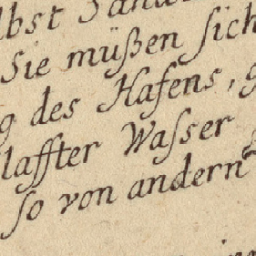 lbst
Sie müßen sich
g des Hafens,
laffter Waſser
so von andern